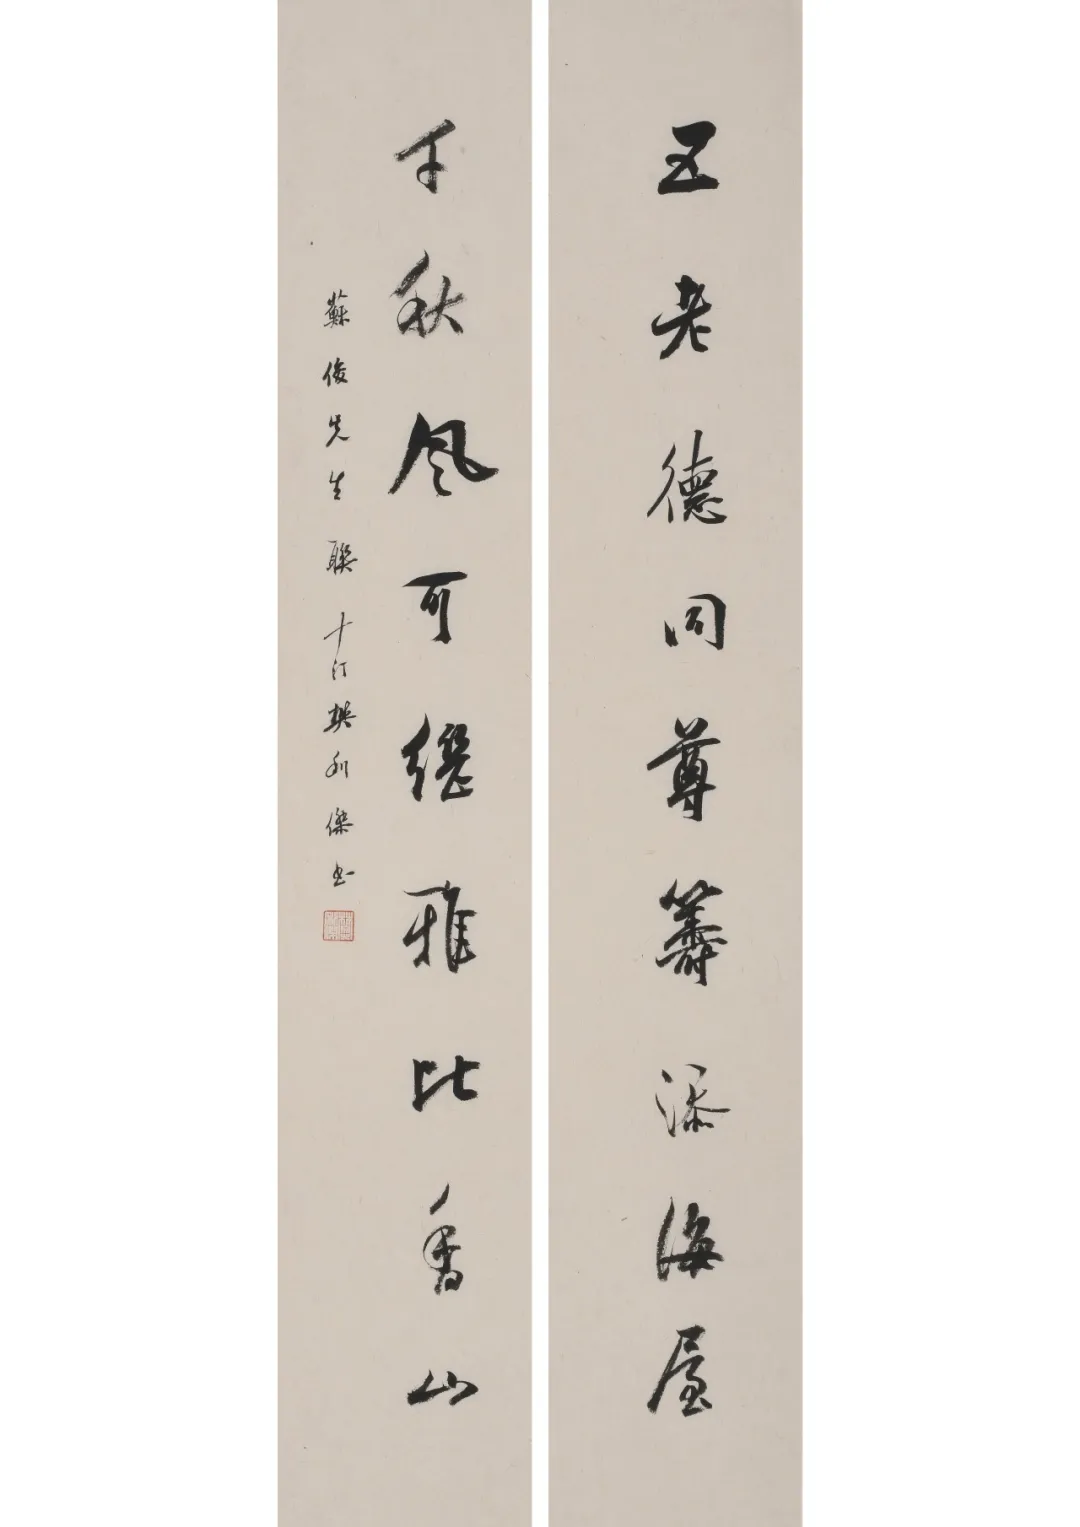 五老德同尊籌添海屋
千秋風可繼雅比香山
蘇俊先生聯 樊利傑书